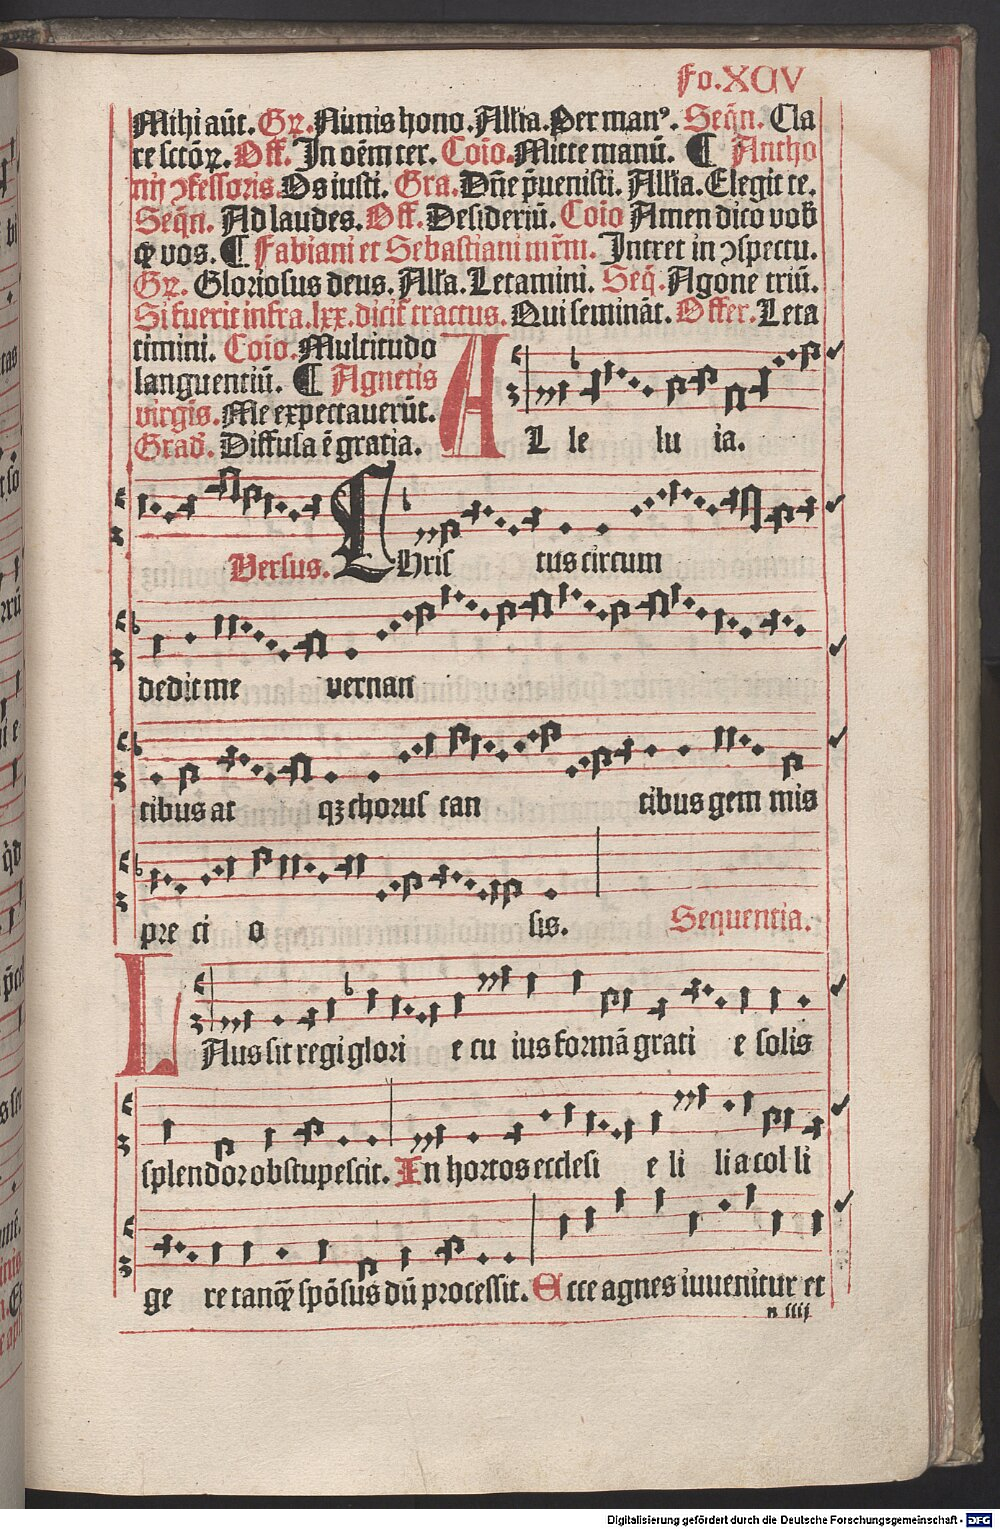 Fo.XCV
Mihi aūt. Gꝝ. Nimis hono. All'ia. Per manꝰ. Seq̄n. Cla
re sctōꝝ. Off. In oēm ter. Coīo. Mitte manū. ¶ Antho
nij ꝯfessoris. Os iusti. Gra. Dn̄e p̄uenisti. All'ia. Elegit te.
Seq̄n. Ad laudes. Off. Desideriū. Coīo Amen dico vob̄
ꝙ vos. ¶ Fabiani et Sebastiani mr̄m. Intret in ꝯspectu.
Gꝝ. Gloriosus deus. All'a. Letamini. Seq̄. Agone triū.
Si fuerit infra .lxx. dicit̄ tractus. Qui semināt. Offer. Leta
timini. Coīo. Multitudo
languentiū. ¶ Agnetis
virgis. Me expectauerūt.
Grad̄. Diffusa ē gratia.
A L le lu ia.
Versus. Chris tus circum
dedit me vernan
tibus at qꝫ chorus can tibus gem mis
pre ci o sis. Sequentia.
LAus sit regi glori e cu ius formā grati e solis
splendor obstupescit. In hortos ecclesi e li li a col li
ge re tanqꝫ spōsus dū processit. Ecce agnes iuuenitur et
n iiij
Digitalisierung gefördert durch die Deutsche Forschungsgemeinschaft - DFG